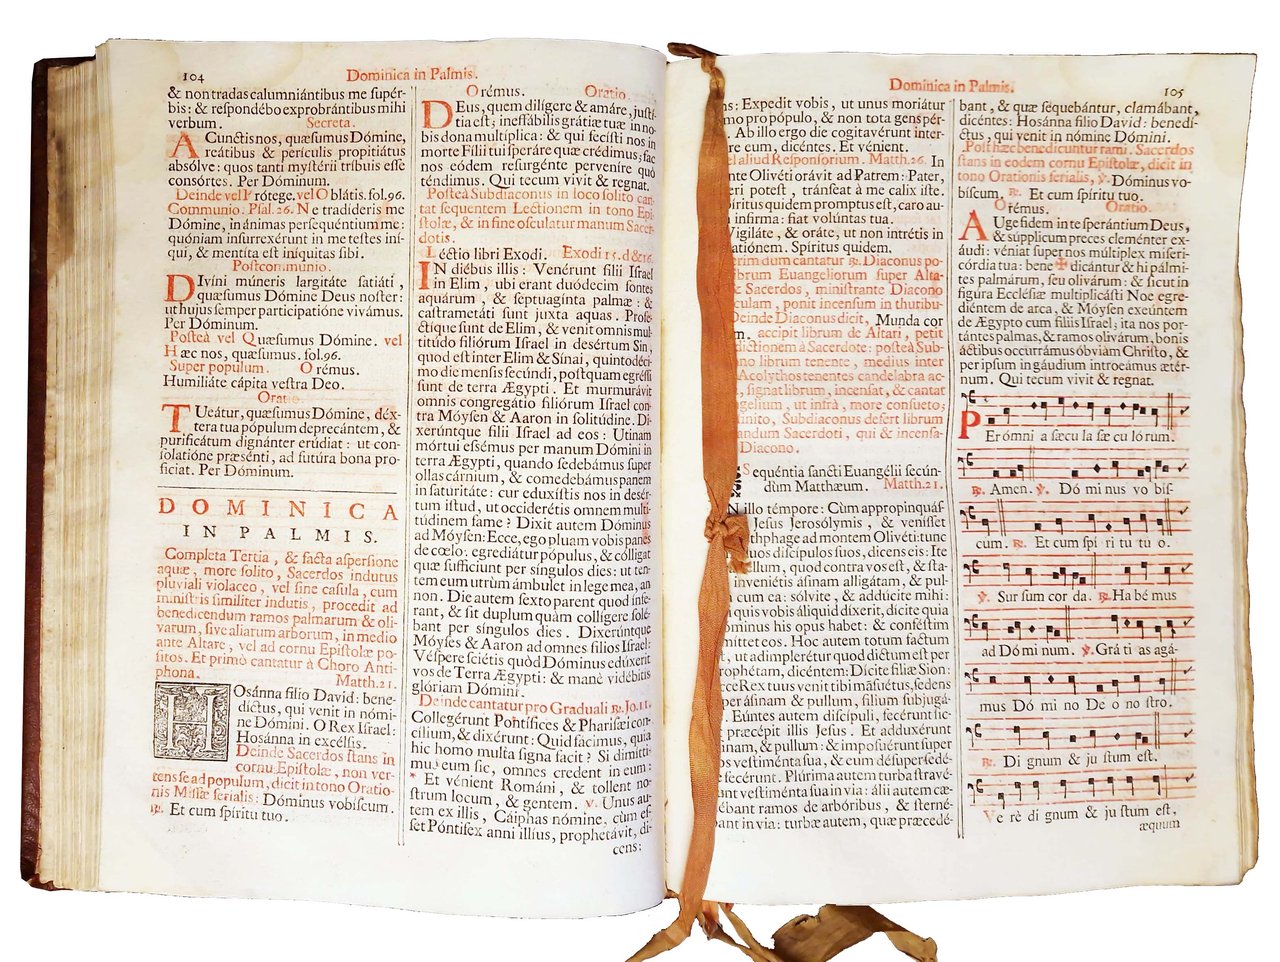 104
Dominica in Palmis.
& non tradas calumniántibus me supér-
bis: & respondébo exprobrántibus mihi
verbum. Secreta.
A Cunctis nos, quæsumus Dómine,
reátibus & perículis propitiátus
absólve: quos tanti mystérii tríbuis esse
consórtes. Per Dóminum.
Deinde vel Prótege. vel Oblátis. fol. 96.
Communio. Psal. 26. Ne tradíderis me
Dómine, in ánimas persequéntium me:
quóniam insurrexérunt in me testes iní-
qui, & mentíta est iníquitas sibi.
Postcommunio.
DIvíni múneris largitáte satiáti,
quæsumus Dómine Deus noster:
ut hujus semper participatióne vivámus.
Per Dóminum.
Posteà vel Quæsumus Dómine. vel
Hæc nos, quæsumus. fol. 96.
Super populum. Orémus.
Humiliáte cápita vestra Deo.
Oratio.
TUeátur, quæsumus Dómine, déx-
tera tua pópulum deprecántem, &
purificátum dignánter erúdiat: ut con-
solatióne præsénti, ad futúra bona pro-
ficiat. Per Dóminum.
DOMINICA
IN PALMIS.
Completa Tertia, & facta aspersione
aquæ, more solito, Sacerdos indutus
pluviali violaceo, vel sine casula, cum
ministris similiter indutis, procedit ad
benedicendum ramos palmarum & oli-
varum, sive aliarum arborum, in medio
ante Altare, vel ad cornu Epistolæ po-
sitos. Et primò cantatur à Choro Anti-
phona. Matth. 21.
HOsánna fílio David: bene-
díctus, qui venit in nómi-
ne Dómini. O Rex Israel:
Hosánna in excélsis.
Deinde Sacerdos stans in
cornu Epistolæ, non ver-
tens se ad populum, dicit in tono Oratio-
nis Missæ ferialis: Dóminus vobíscum.
℟. Et cum spíritu tuo.
Orémus. Oratio.
DEus, quem dilígere & amáre, justí-
tia est; ineffábilis grátiæ tuæ in no-
bis dona multíplica: & qui fecísti nos in
morte Fílii tui speráre quæ crédimus; fac
nos eódem resurgénte perveníre quò
téndimus. Qui tecum vivit & regnat.
Posteà Subdiaconus in loco solito can-
tat sequentem Lectionem in tono Epi-
stolæ, & in fine osculatur manum Sacer-
dotis.
Léctio libri Exodi. Exodi 15. d & 16.
IN diébus illis: Venérunt fílii Israel
in Elim, ubi erant duódecim fontes
aquárum, & septuagínta palmæ: &
castrametáti sunt juxta aquas. Profe-
ctíque sunt de Elim, & venit omnis mul-
titúdo filiórum Israel in desértum Sin,
quod est inter Elim & Sínai, quintodéci-
mo die mensis secúndi, postquam egréssi
sunt de terra Ægypti. Et murmurávit
omnis congregátio filiórum Israel con-
tra Móysen & Aaron in solitúdine. Di-
xerúntque fílii Israel ad eos: Utinam
mórtui essémus per manum Dómini in
terra Ægypti, quando sedebámus super
ollas cárnium, & comedebámus panem
in saturitáte: cur eduxístis nos in desér-
tum istud, ut occiderétis omnem multi-
túdinem fame? Dixit autem Dóminus
ad Móysen: Ecce, ego pluam vobis panes
de cœlo: egrediátur pópulus, & cólligat
quæ suffíciunt per síngulos dies: ut ten-
tem eum utrùm ámbulet in lege mea, an
non. Die autem sexto parent quod ínfe-
rant, & sit duplum quàm collígere solé-
bant per síngulos dies. Dixerúntque
Móyses & Aaron ad omnes fílios Israel:
Véspere sciétis quòd Dóminus edúxerit
vos de Terra Ægypti: & manè vidébitis
glóriam Dómini.
Deinde cantatur pro Graduali ℟. Jo. 11.
Collegérunt Pontífices & Pharisǽi con-
cílium, & dixérunt: Quid fácimus, quia
hic homo multa signa facit? Si dimitti-
mus eum sic, omnes credent in eum:
* Et vénient Románi, & tollent no-
strum locum, & gentem. ℣. Unus au-
tem ex illis, Cáiphas nómine, cùm es-
set Póntifex anni illíus, prophetávit, di-
cens:
Dominica in Palmis.
105
ns: Expedit vobis, ut unus moriátur
mo pro pópulo, & non tota gens pér-
Ab illo ergo die cogitavérunt inter-
re eum, dicéntes. Et vénient.
el aliud Responsorium. Matth. 26. In
nte Olivéti orávit ad Patrem: Pater,
eri potest, tránseat à me calix iste.
íritus quidem promptus est, caro au-
infirma: fiat volúntas tua.
Vigiláte, & oráte, ut non intrétis in
atiónem. Spíritus quidem.
erim dum cantatur ℟. Diaconus po-
ibrum Euangeliorum super Alta-
& Sacerdos, ministrante Diacono
culam, ponit incensum in thuribu-
Deinde Diaconus dicit, Munda cor
m. accipit librum de Altari, petit
dictionem à Sacerdote: posteà Sub-
no librum tenente, medius inter
Acolythos tenentes candelabra ac-
, signat librum, incensat, & cantat
ngelium, ut infrà, more consueto;
inito, Subdiaconus defert librum
andum Sacerdoti, qui & incensa-
Diacono.
Sequéntia sancti Euangélii secún-
dùm Matthæum. Matth. 21.
N illo témpore: Cùm appropinquás-
Jesus Jerosólymis, & venísset
thphage ad montem Olivéti: tunc
uos discípulos suos, dicens eis: Ite
éllum, quod contra vos est, & sta-
inveniétis ásinam alligátam, & pul-
cum ea: sólvite, & addúcite mihi:
quis vobis áliquid díxerit, dícite quia
óminus his opus habet: & conféstim
mittet eos. Hoc autem totum factum
, ut adimplerétur quod dictum est per
ophétam, dicéntem: Dícite fíliæ Sion:
cce Rex tuus venit tibi mansuétus, sedens
per ásinam & pullum, fílium subjugá-
. Eúntes autem discípuli, fecérunt sic-
præcépit illis Jesus. Et adduxérunt
inam, & pullum: & imposuérunt super
os vestiménta sua, & eum désuper sedé-
e fecérunt. Plúrima autem turba stravé-
nt vestiménta sua in via: álii autem cæ-
ébant ramos de arbóribus, & sterné-
bant in via: turbæ autem, quæ præcedé-
bant, & quæ sequebántur, clamábant,
dicéntes: Hosánna fílio David: benedí-
ctus, qui venit in nómine Dómini.
Posthæc benedicuntur rami. Sacerdos
stans in eodem cornu Epistolæ, dicit in
tono Orationis ferialis, ℣. Dóminus vo-
bíscum. ℟. Et cum spíritu tuo.
Orémus. Oratio.
AUge fidem in te sperántium Deus,
& súpplicum preces cleménter ex-
áudi: véniat super nos múltiplex miseri-
córdia tua: bene✠dicántur & hi pálmi-
tes palmárum, seu olivárum: & sicut in
figúra Ecclésiæ multiplicásti Noe egre-
diéntem de arca, & Móysen exeúntem
de Ægypto cum fíliis Israel; ita nos por-
tántes palmas, & ramos olivárum, bonis
áctibus occurrámus óbviàm Christo, &
per ipsum in gáudium introeámus ætér-
num. Qui tecum vivit & regnat.
Per ómni a sæcu la sæ cu ló rum.
℟. Amen. ℣. Dó mi nus vo bís-
cum. ℟. Et cum spí ri tu tu o.
℣. Sur sum cor da. ℟. Ha bé mus
ad Dó mi num. ℣. Grá ti as agá-
mus Dó mi no De o no stro.
℟. Di gnum & ju stum est.
Ve rè di gnum & ju stum est,
æquum